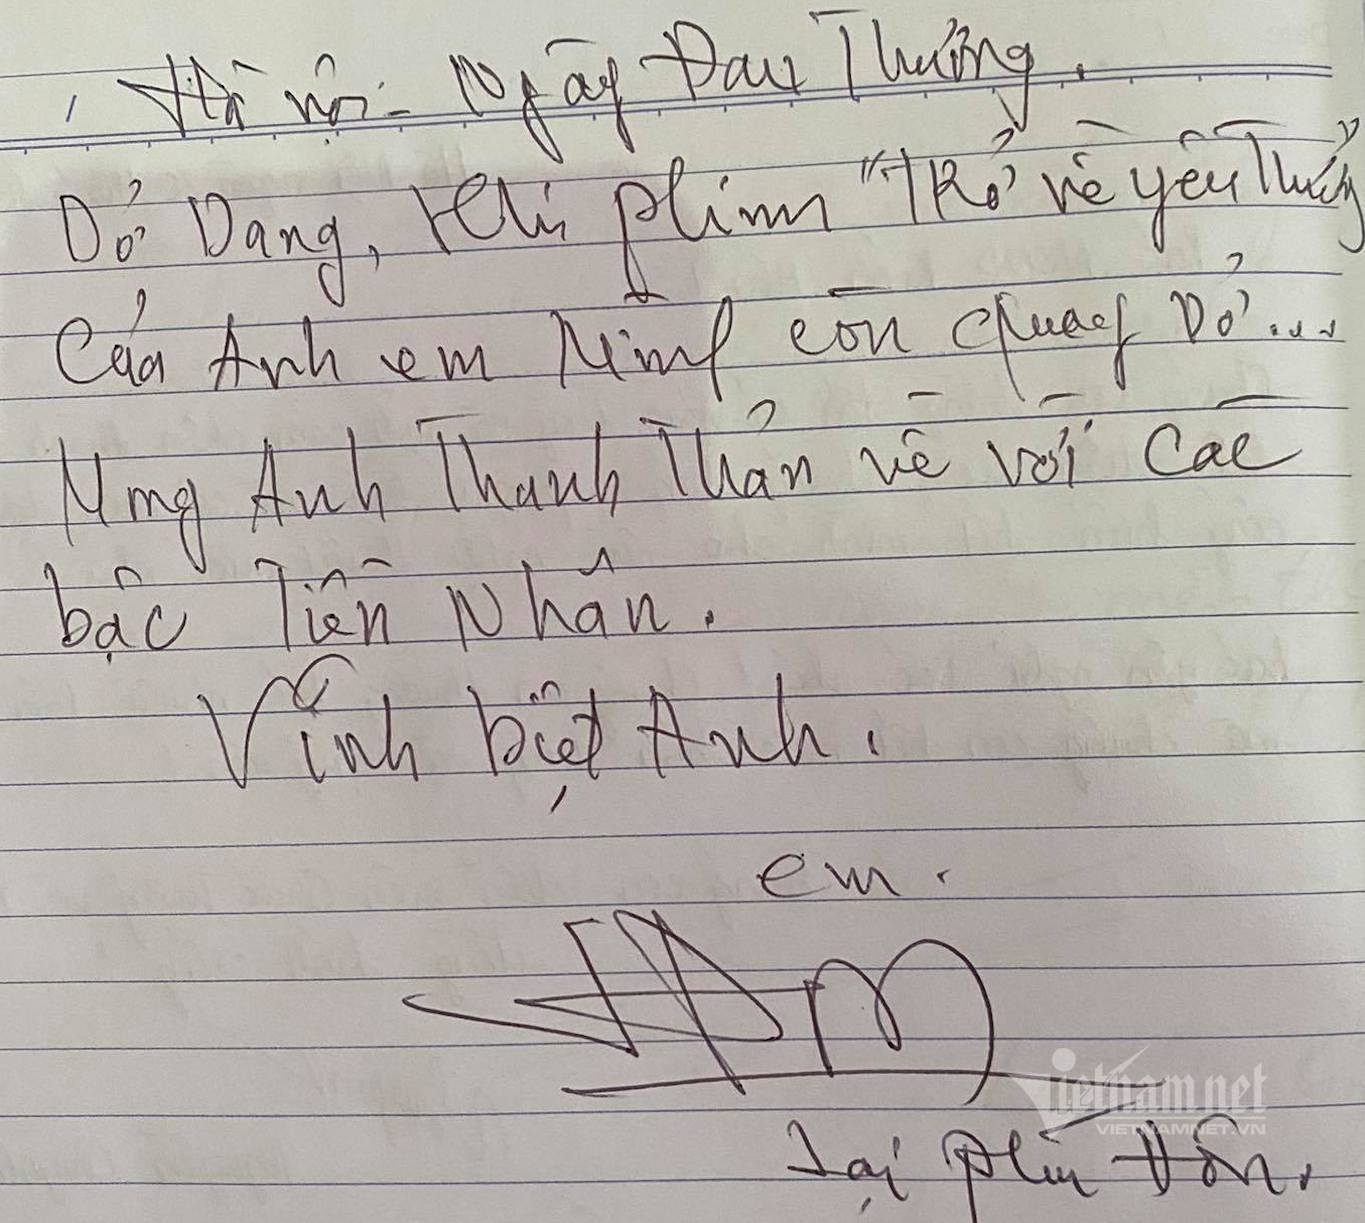 Hà nội - Ngày Đau Thương.
Dở Dang, khi phim "Trở về yêu Thương
Của Anh em Mình còn quay Dở...
Mong Anh Thanh Thản về với Các
bậc Tiền Nhân.
Vĩnh biệt Anh.
em.
vietnam.net
VIETNAMNET.VN